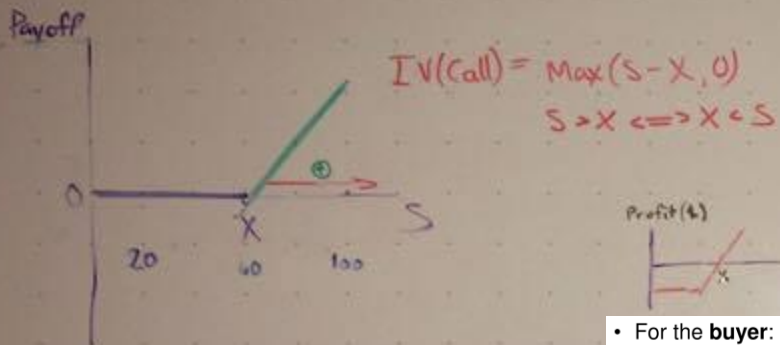 Payoff
IV(Call) = Max(S-X, 0)
S > X <=> X < S
+
0
X
S
20
60
100
Profit($)
X
• For the buyer: